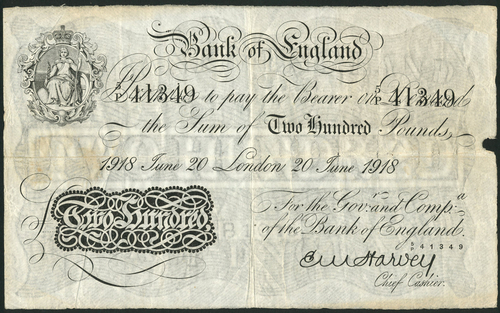 Bank of England
5/P 41349 5/P 41349
Promise to pay the Bearer on Demand
the Sum of Two Hundred Pounds
1918 June 20 London 20 June 1918
For the Govr. and Compa.
of the Bank of England.
Two Hundred.
5/P 41349
E M Harvey
Chief Cashier.